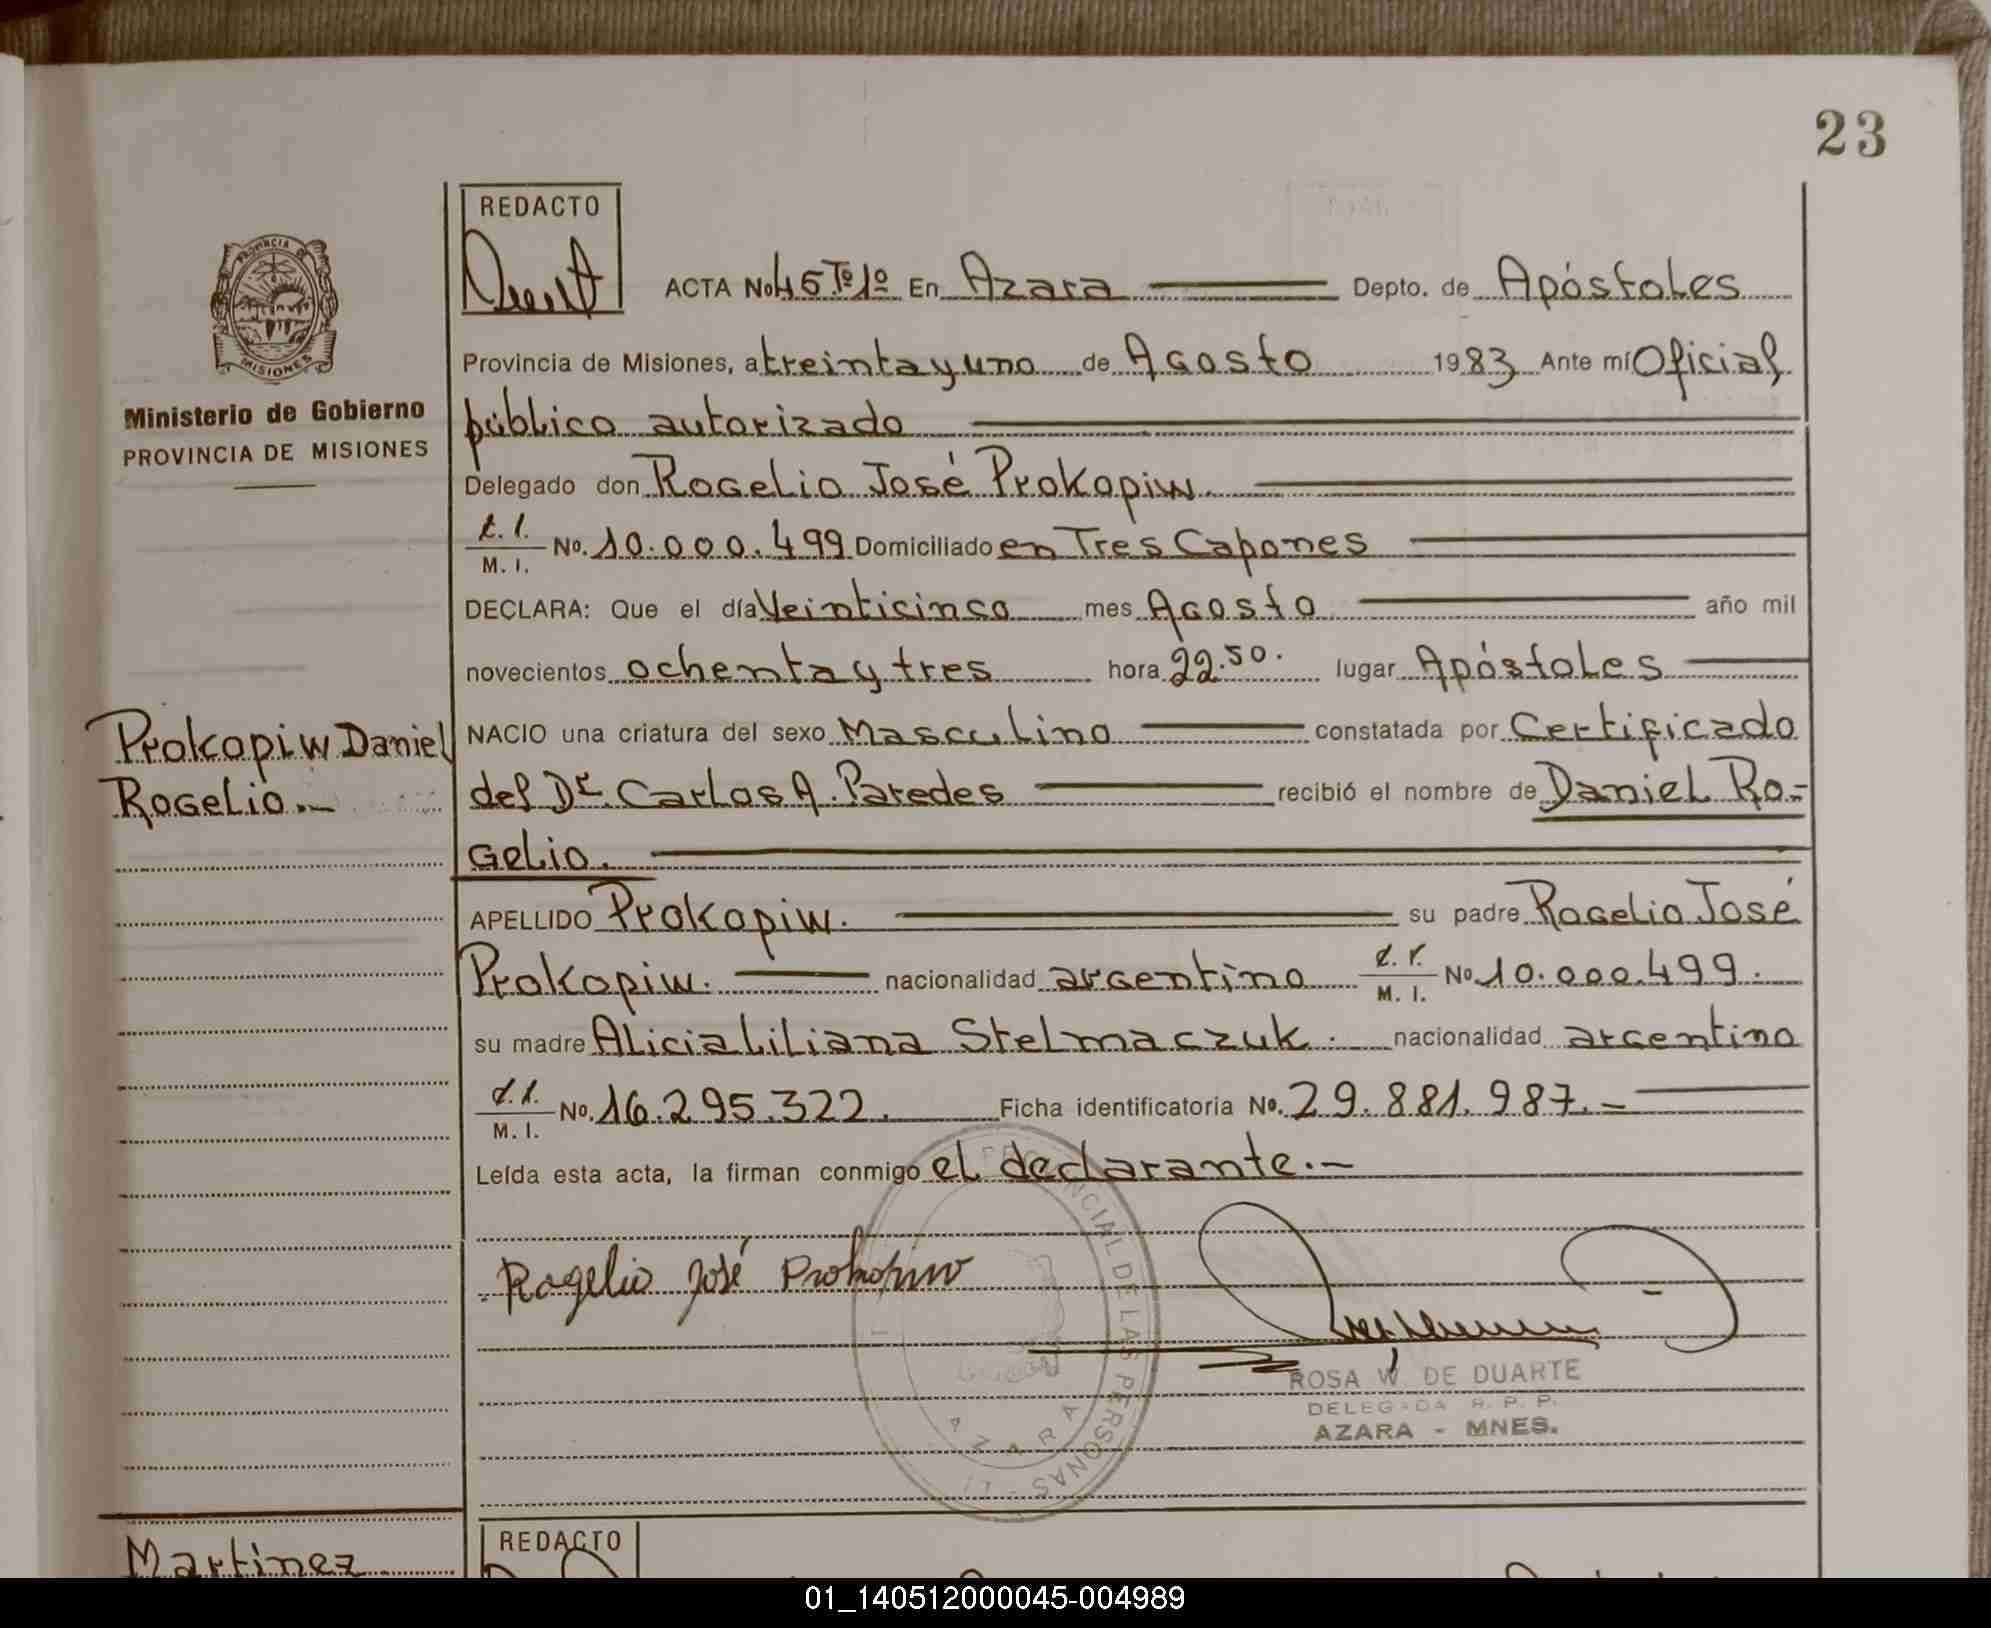 23
REDACTO
ACTA No 45 Tº 1º En Azara Depto. de Apóstoles
Provincia de Misiones, a treinta y uno de Agosto 1983 Ante mí Oficial
público autorizado
Delegado don Rogelio José Prokopiw.
M. I. No. 10.000.499 Domiciliado en Tres Capones
DECLARA: Que el día Veinticinco mes Agosto año mil
novecientos ochenta y tres hora 22.50. lugar Apóstoles
NACIO una criatura del sexo Masculino constatada por Certificado
del Dr. Carlos A. Paredes recibió el nombre de Daniel Ro-
gelio.
APELLIDO Prokopiw. su padre Rogelio José
Prokopiw. nacionalidad argentino M. I. No 10.000.499.
su madre Alicia Liliana Stelmaczuk. nacionalidad argentino
M. I. No. 16.295.322. Ficha identificatoria No. 29.881.987.-
Leída esta acta, la firman conmigo el declarante.-
Rogelio José Prokopiw
ROSA W. DE DUARTE
DELEGADA R. P. P.
AZARA - MNES.
PROVINCIAL DE LAS PERSONAS
AZARA
PROVINCIA DE
MISIONES
Ministerio de Gobierno
PROVINCIA DE MISIONES
Prokopiw Daniel
Rogelio.-
Martinez
REDACTO
01_140512000045-004989